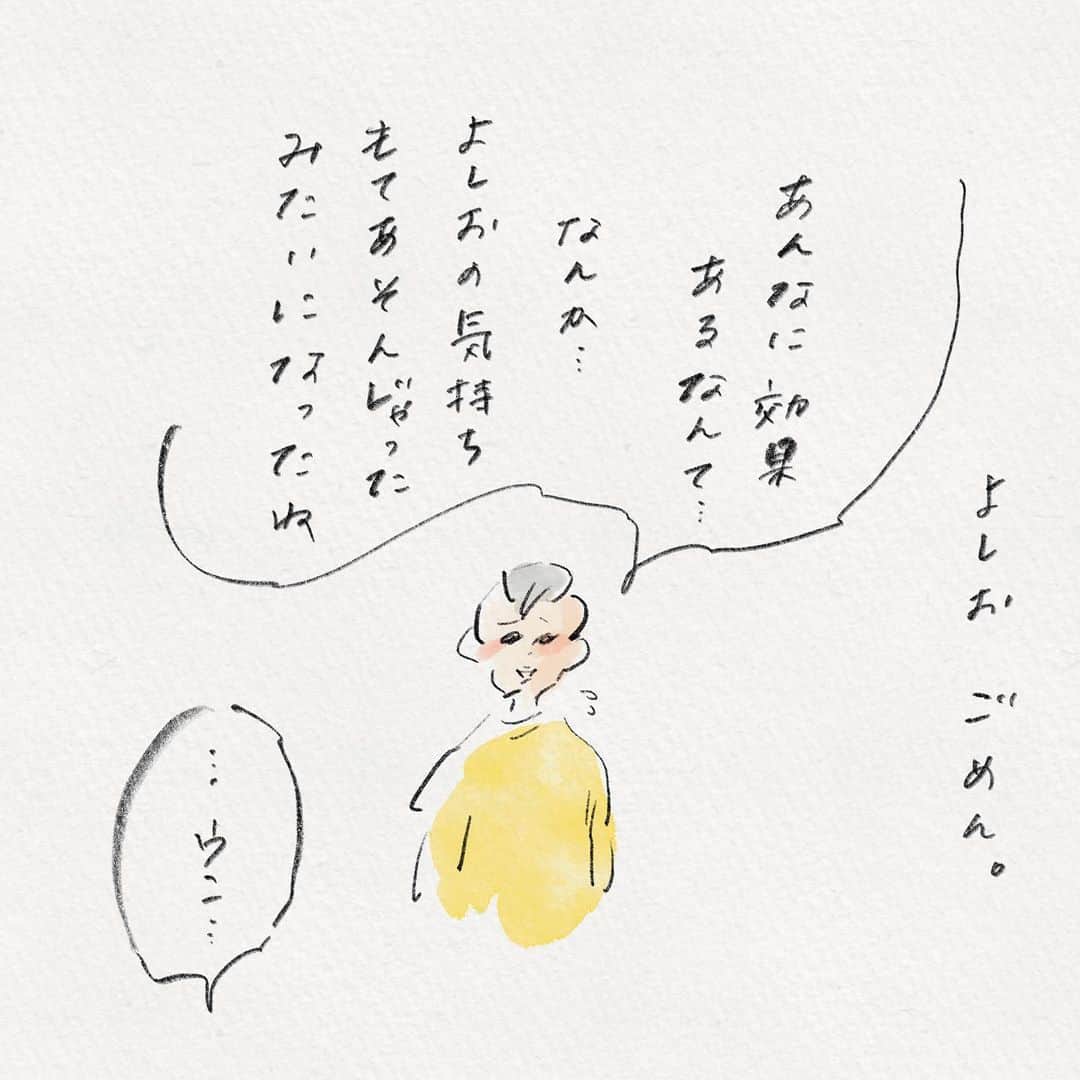 よしお ごめん。
あんなに効果
あるなんて…
なんか…
よしおの気持ち
もてあそんじゃった
みたいになったね
…ウニ…